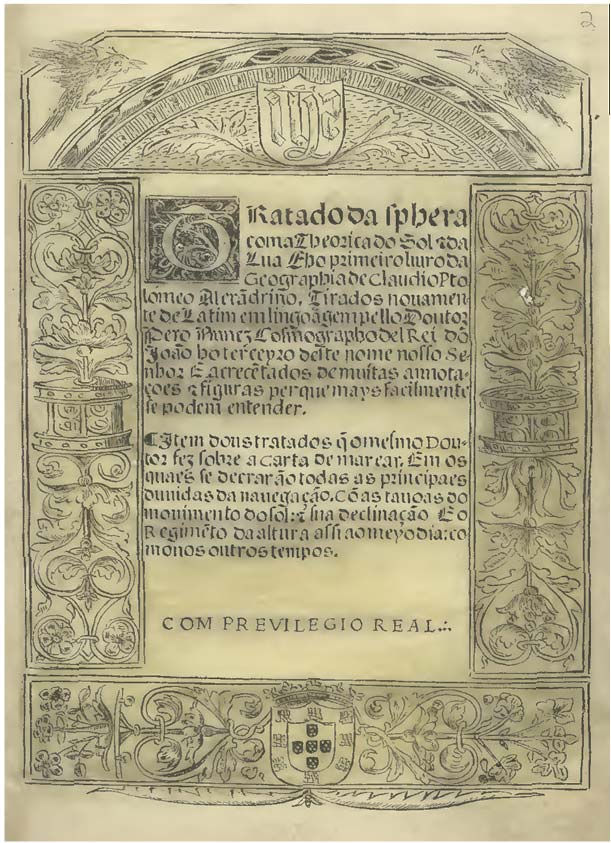 2
ihs
TRatado da sphera
com a Theorica do Sol ⁊ da
Lua. E ho primeiro liuro da
Geographia de Claudio Pto
lomeo Alexãdrino. Tirados nouamen
te de Latim em lingoagem pello Doutor
Pero Nunez Cosmographo del Rei dõ
João ho terceyro deste nome nosso Se-
nhor. E acrecẽtados de muitas annota-
ções ⁊ figuras per que mays facilmente
se podem entender.
¶ Item dous tratados q̃ o mesmo Dou-
tor fez sobre a carta de marear. Em os
quaes se decrarão todas as principaes
duuidas da nauegação. Cõ as tauoas do
mouimento do sol: ⁊ sua declinação. E o
Regimẽto da altura assi ao meyo dia: co
mo nos outros tempos.
COM PREVILEGIO REAL.